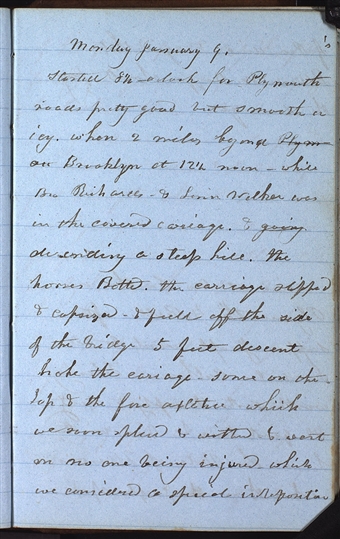 Monday January 9.
Started 8½ oclock for Plymouth
roads pretty good but smooth &
icy. when 2 miles beyond Plym
on Brooklyn at 12½ noon - while
Bro Richards & Levi Walker was
in the covered cariage. & going
descending a steep hill. the
horses Bolted. the carriage slipped
& capsized - & fell off the side
of the bridge 5 feet descent
broke the cariage some on the
top & the fore axletree which
we soon & & went
on no one being injured which
we considered a special interposition